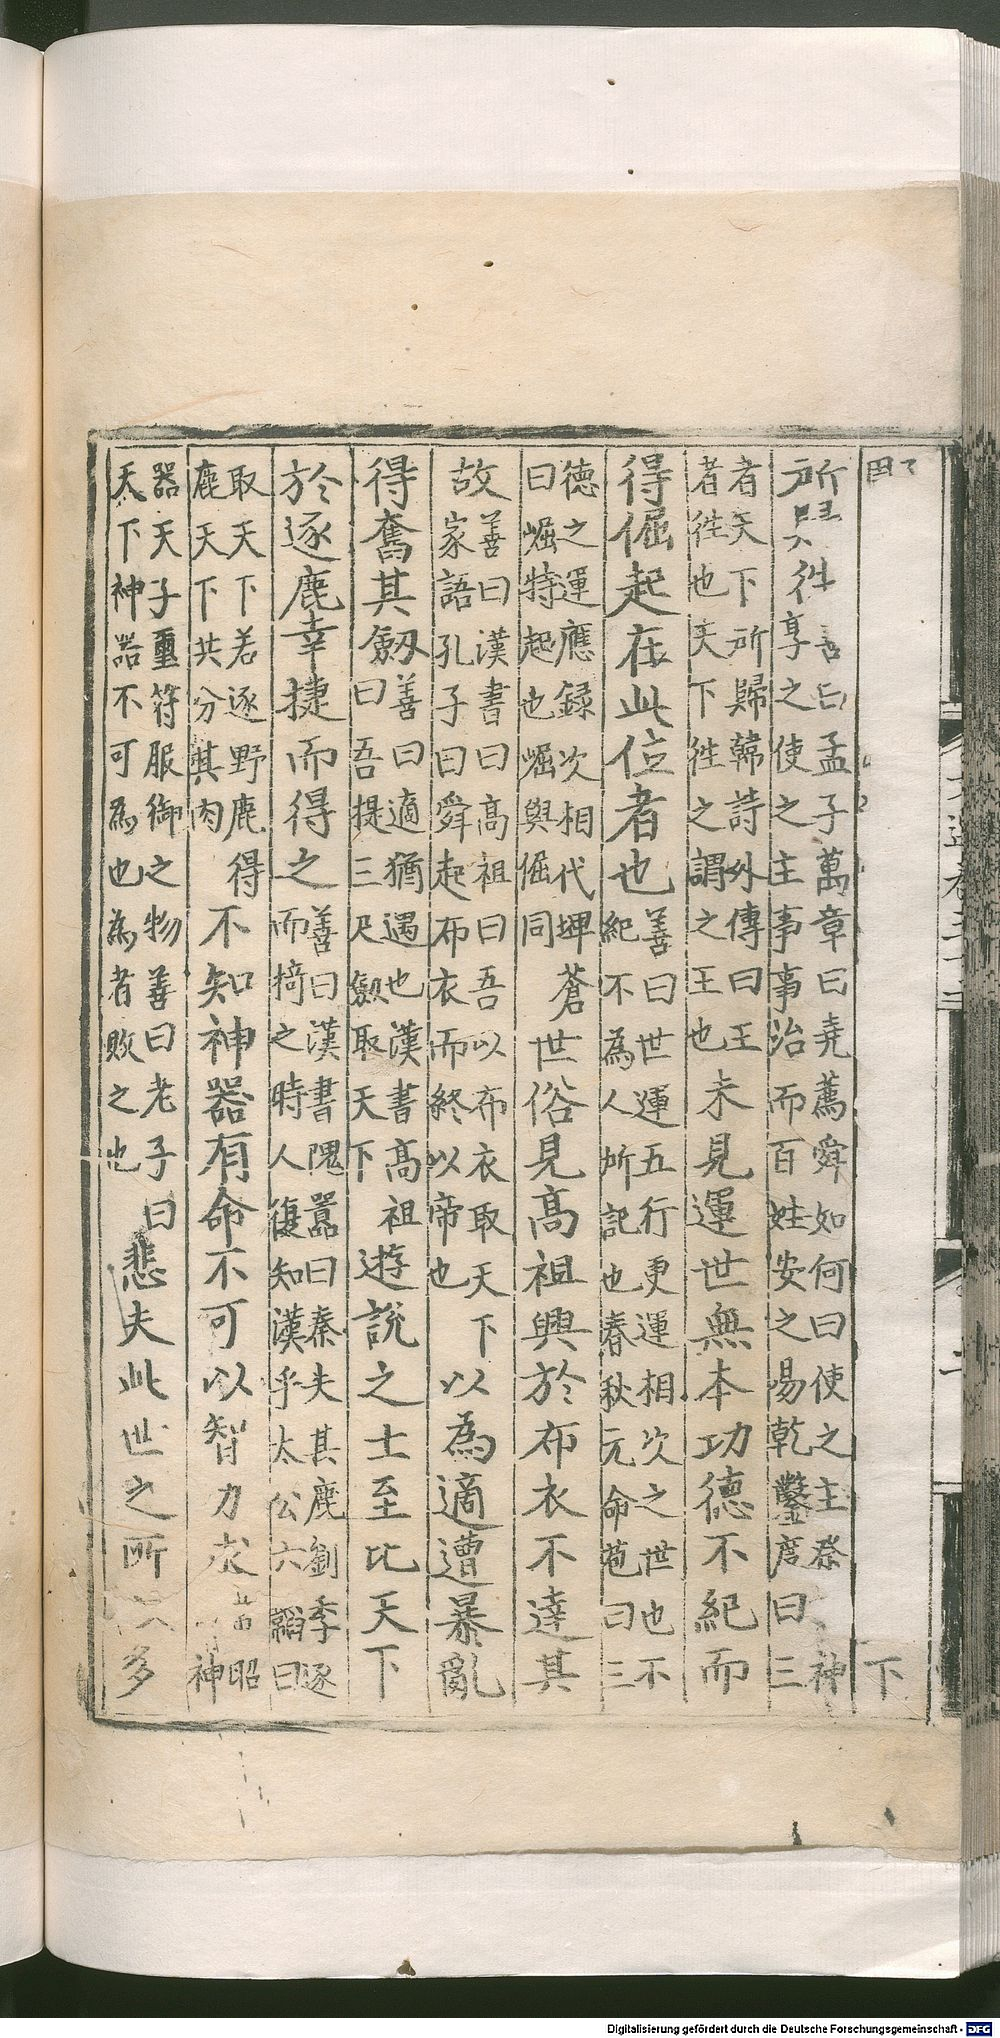 下
所
徃
善曰孟子萬章曰堯薦舜如何曰使之主祭神
享之使之主事事治而百姓安之易乾鑿度曰三
者天下所歸韓詩外傳曰王
者徃也天下徃之謂之王也
未見運世無本功德不紀而
得倔起在此位者也
善曰世運五行更運相次之世也不
紀不為人所記也春秋元命苞曰三
德之運應録次相代埤蒼
曰崛特起也崛與倔同
世俗見高祖興於布衣不達其
故
善曰漢書曰高祖曰吾以布衣取天下
家語孔子曰舜起布衣而終以帝也
以為適遭暴亂
得奮其劔
善曰適猶遇也漢書高祖
曰吾提三尺劔取天下
遊說之士至比天下
於逐鹿幸捷而得之
善曰漢書隗囂曰秦失其鹿劉季逐
而掎之時人復知漢乎太公六韜曰
取天下若逐野鹿得
鹿天下共分其肉
不知神器有命不可以智力求
昭
神
器天子璽符服御之物善曰老子曰
天下神器不可為也為者敗之也
悲夫此世之所以多
Digitalisierung gefördert durch die Deutsche Forschungsgemeinschaft - DFG